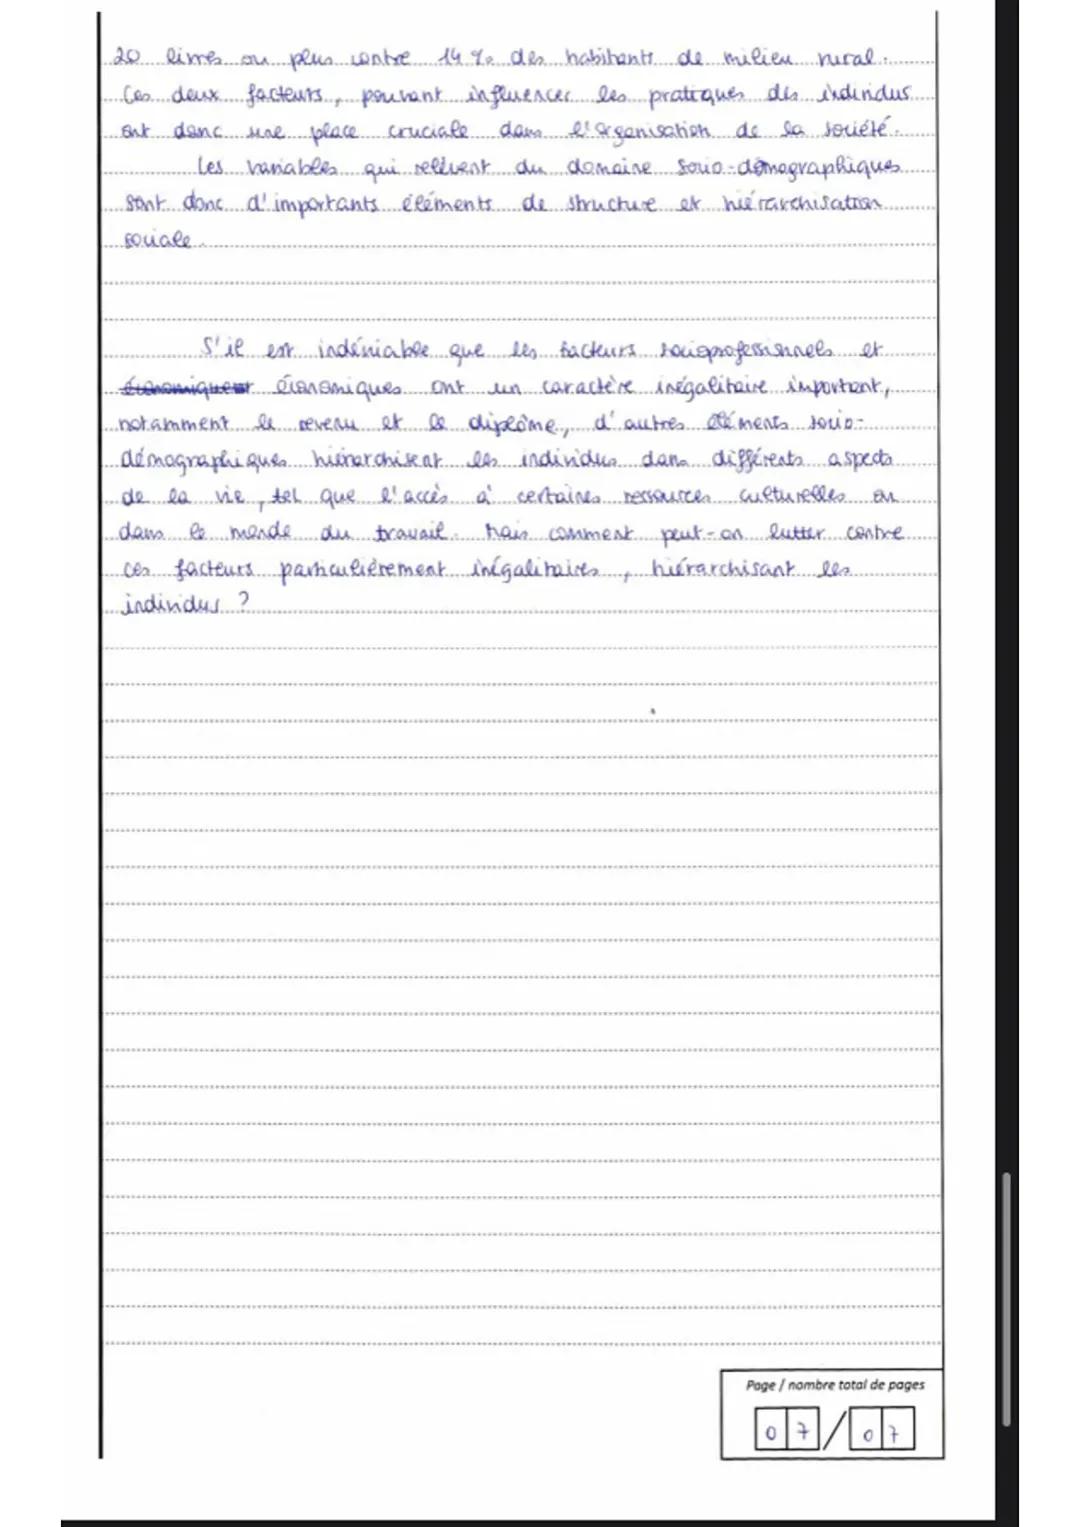 20 livres ou plus contre 14 % des habitants de milieu rural.
Ces deux facteurs, pouvant influencer les pratiques des individus
ont donc une place cruciale dans l'organisation de la société.
Les variables qui relèvent du domaine socio-démographiques
sont donc d'importants éléments de structure et hiérarchisation
sociale.
S'il est indéniable que les facteurs socioprofessionnels et
économiques ont un caractère inégalitaire important,
notamment le revenu et le diplôme, d'autres éléments socio-
démographiques hiérarchisent les individus dans différents aspects
de la vie, tel que l'accès à certaines ressources culturelles ou
dans le monde du travail. Mais comment peut-on lutter contre
ces facteurs particulièrement inégalitaires, hiérarchisant les
individus ?
Page / nombre total de pages
07 / 07